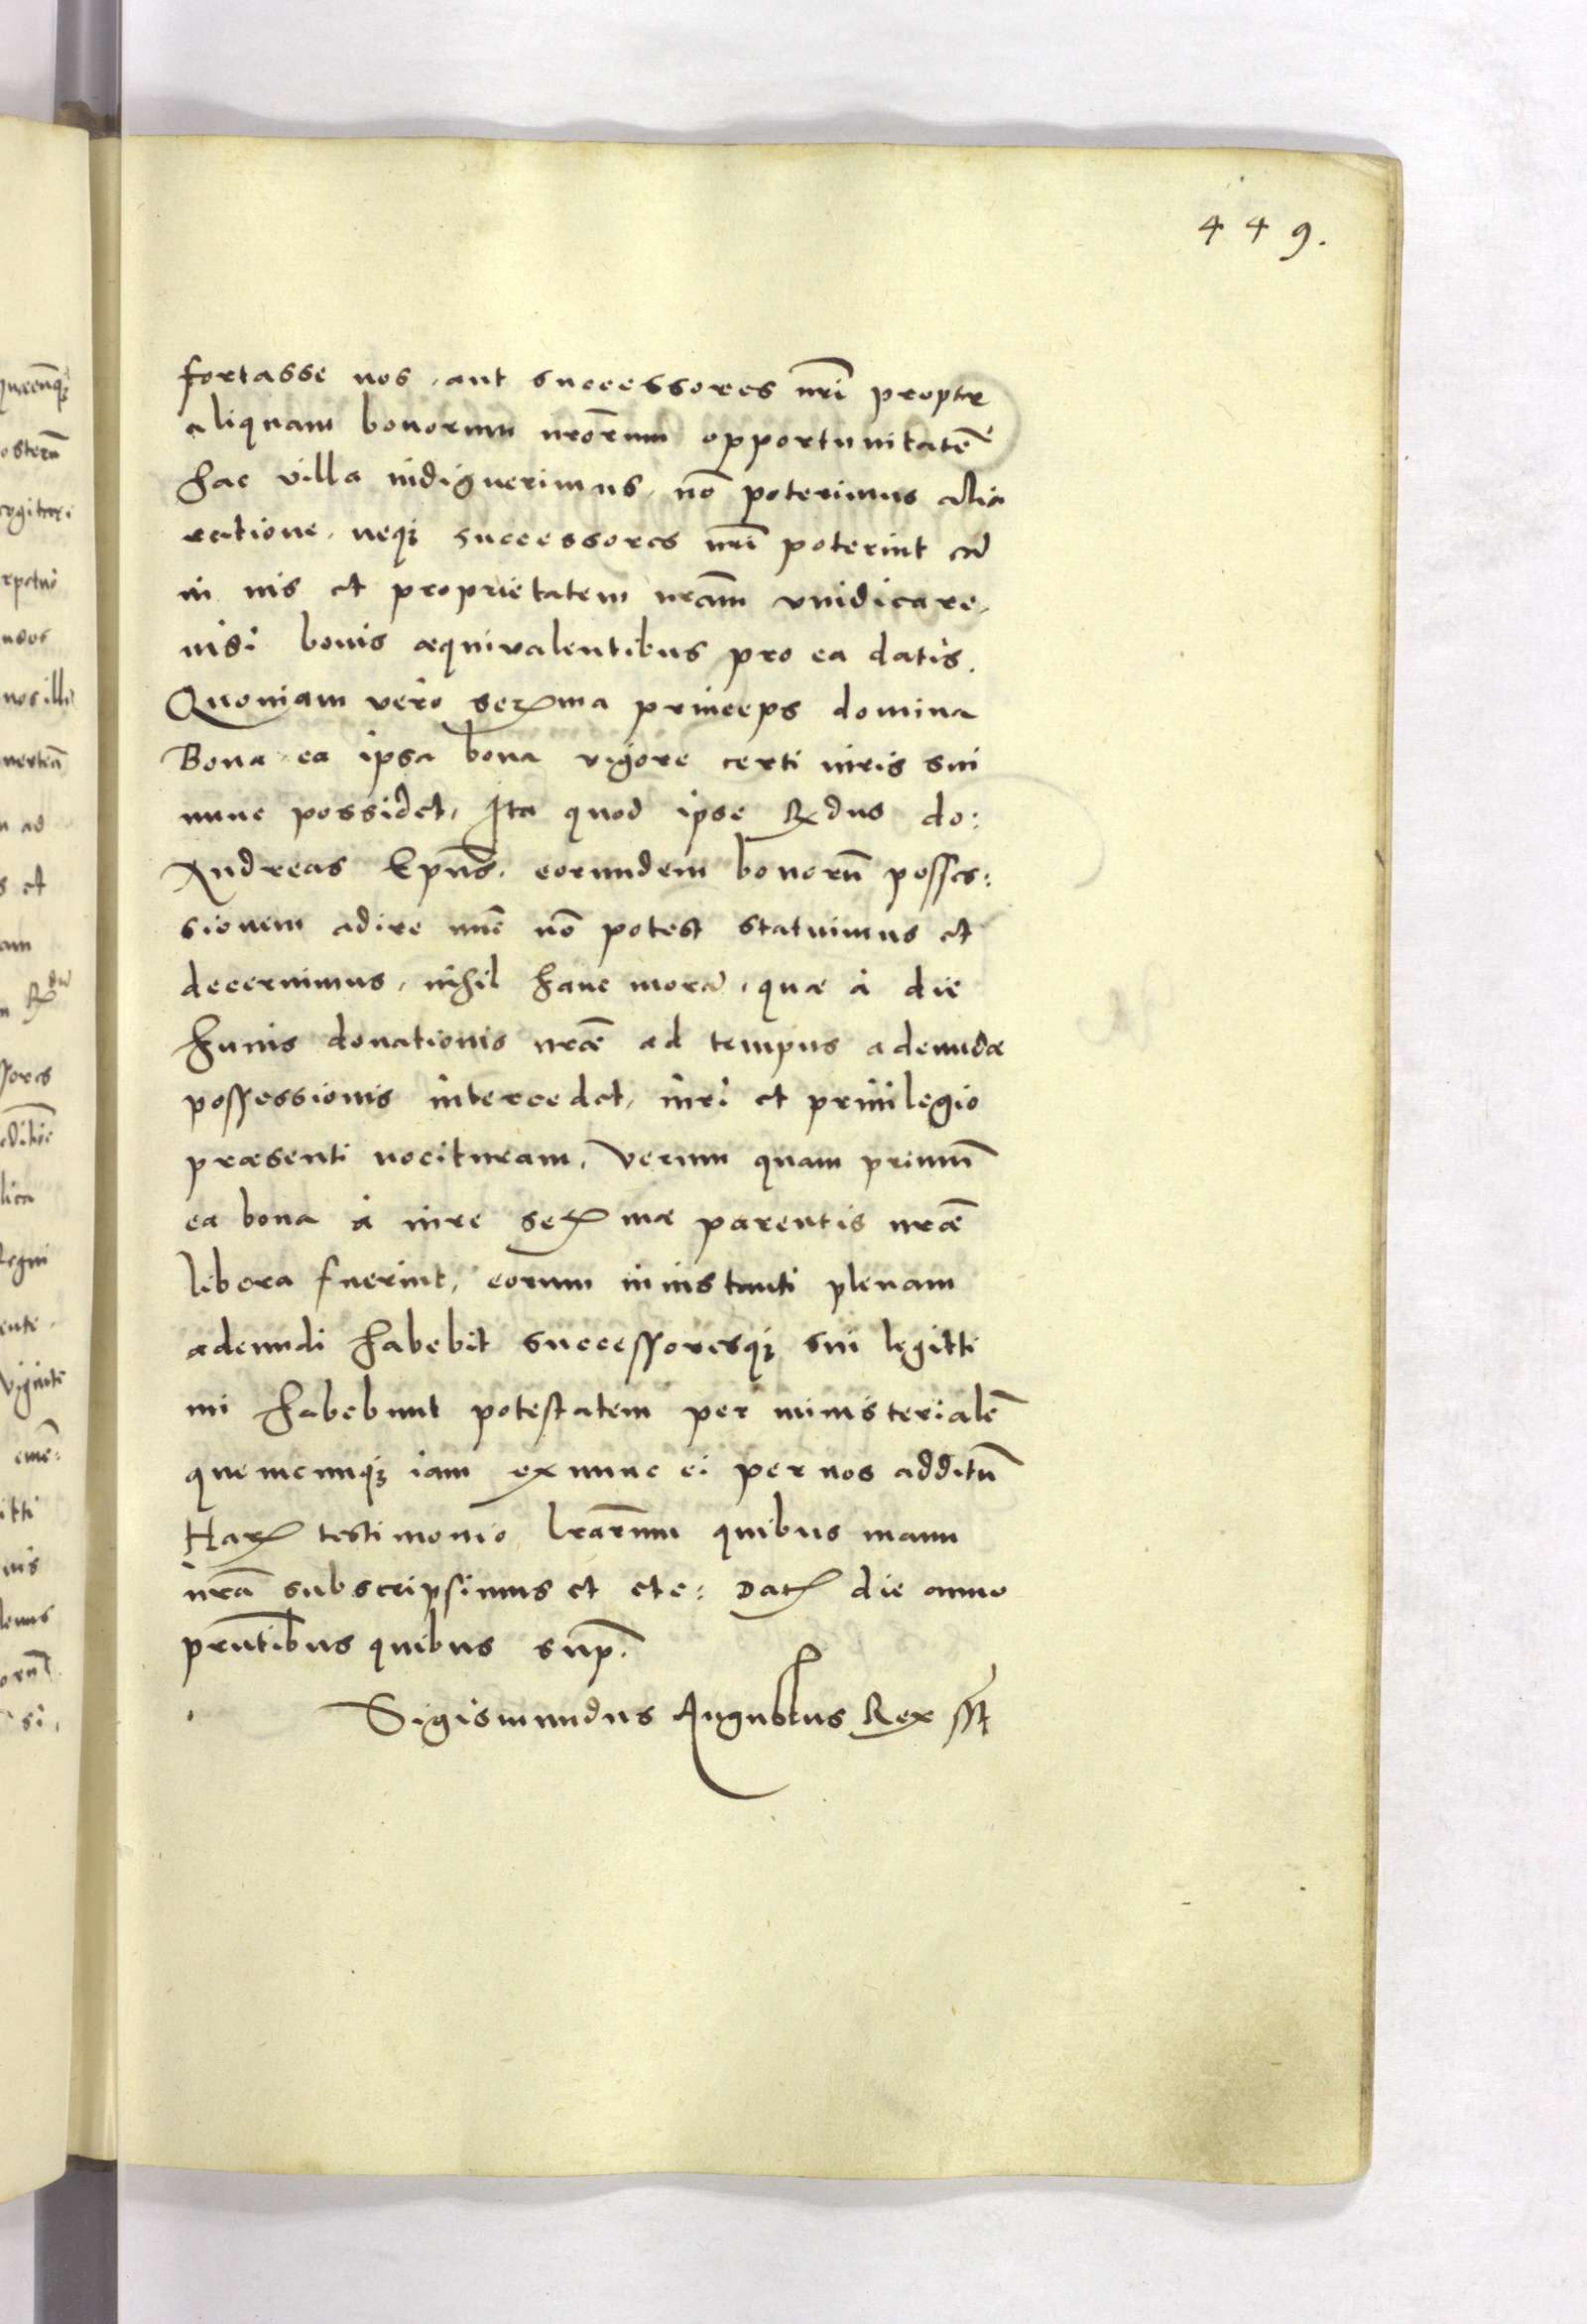 449.
fortasse nos, aut successores nr̄i propter
aliquam bonorum nrōrum opportunitatē
hac villa indiguerimus, nō poterimus alia
ratione, neqз successores nr̄i poterint ad
in ius et proprietatem nrām vindicare,
nisi bonis æquivalentibus pro ea datis.
Quoniam vero serma princeps domina
Bona ea ipsa bona vigore certi iuris sui
nunc possidet, Ita quod ipse Rdus do:
Andreas Epūs, eorundem bonorū posses:
sionem adire nūc nō potest statuimus et
decernimus, nihil hanc morā, quæ à die
huius donationis nrǣ ad tempus adeundæ
possessionis intercedet, iuri et priuilegio
præsenti nocituram, Verum quam primū
ea bona à iure sermæ parentis nrǣ
libera fuerint, eorum in instanti plenam
adeundi habebit successoresqз sui legitti
mi habebunt potestatem per ministerialē
quemcunqз iam ex nunc ei per nos additū
Har testimonio lrārum quibus manu
nrā subscripsimus et etc: Dat die anno
prn̄tibus quibus sup.
Sigismundus Augustus Rex sst
quæcunqз
osterū
uos illi
n ad
s et
am
n Rdus
ssores
lica
Regni
itti
uis
si,